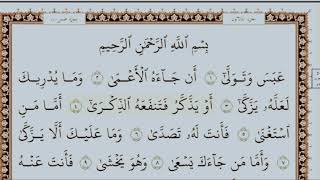 بِسْمِ اللَّهِ الرَّحْمَٰنِ الرَّحِيمِ
عَبَسَ وَتَوَلَّىٰ ١ أَن جَاءَهُ الْأَعْمَىٰ ٢ وَمَا يُدْرِيكَ
لَعَلَّهُ يَزَّكَّىٰ ٣ أَوْ يَذَّكَّرُ فَتَنفَعَهُ الذِّكْرَىٰ ٤ أَمَّا مَنِ
اسْتَغْنَىٰ ٥ فَأَنتَ لَهُ تَصَدَّىٰ ٦ وَمَا عَلَيْكَ أَلَّا يَزَّكَّىٰ
٧ وَأَمَّا مَن جَاءَكَ يَسْعَىٰ ٨ وَهُوَ يَخْشَىٰ ٩ فَأَنتَ عَنْهُ